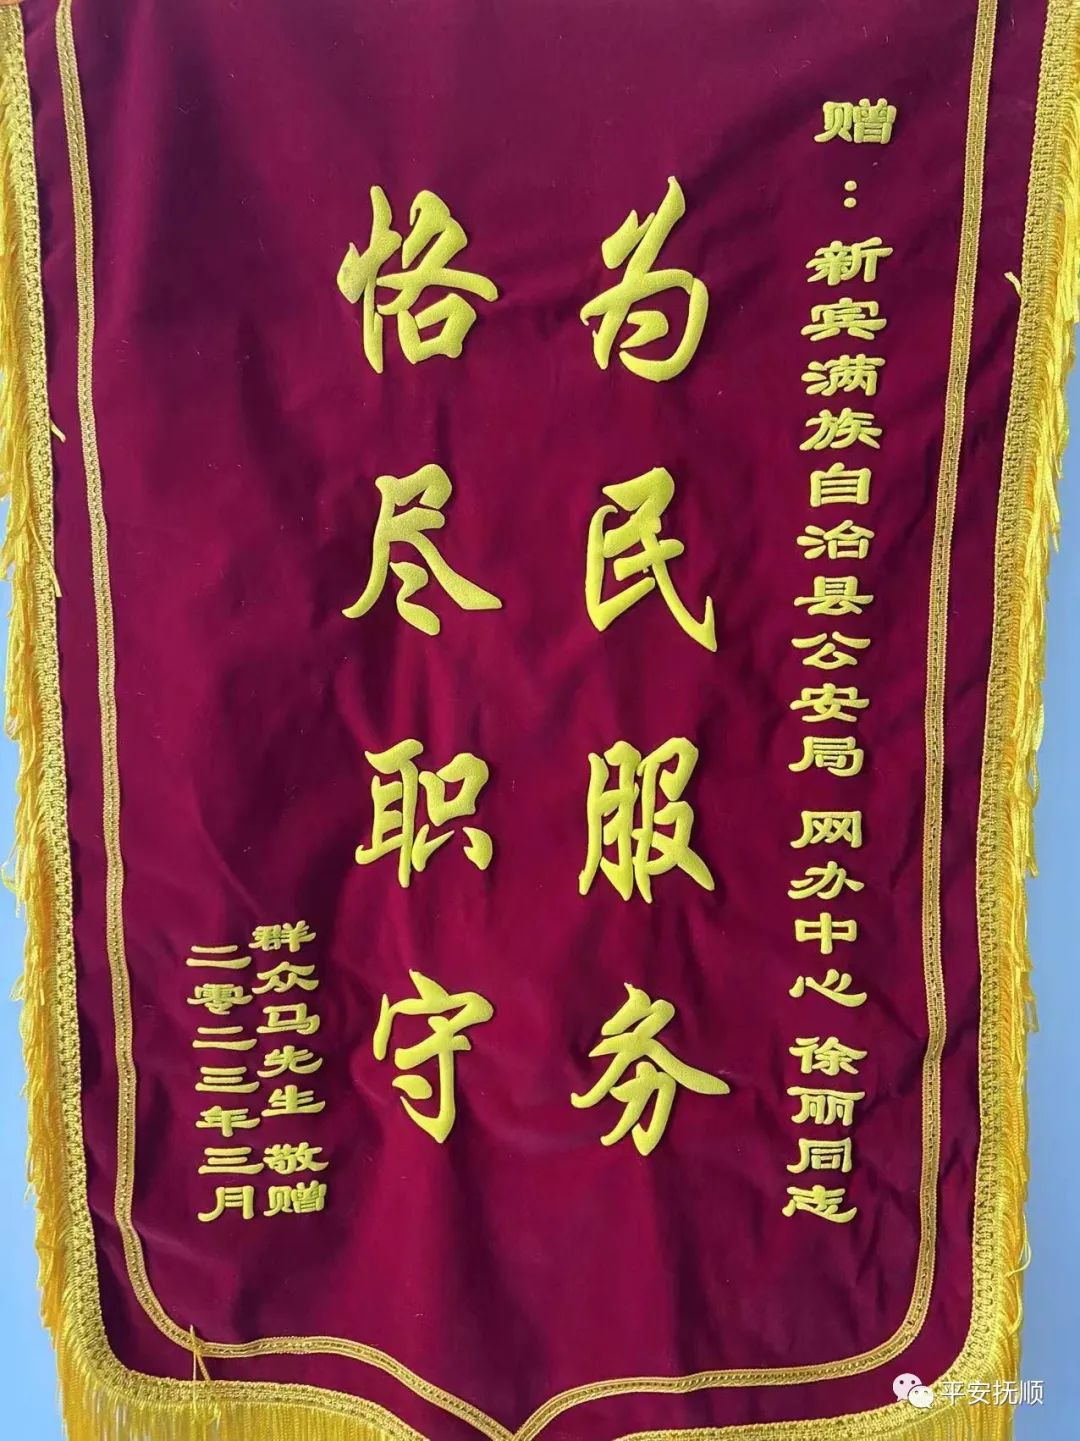 赠：新宾满族自治县公安局 网办中心 徐丽同志
为民服务
恪尽职守
群众马先生 敬赠
二零二三年三月
平安抚顺